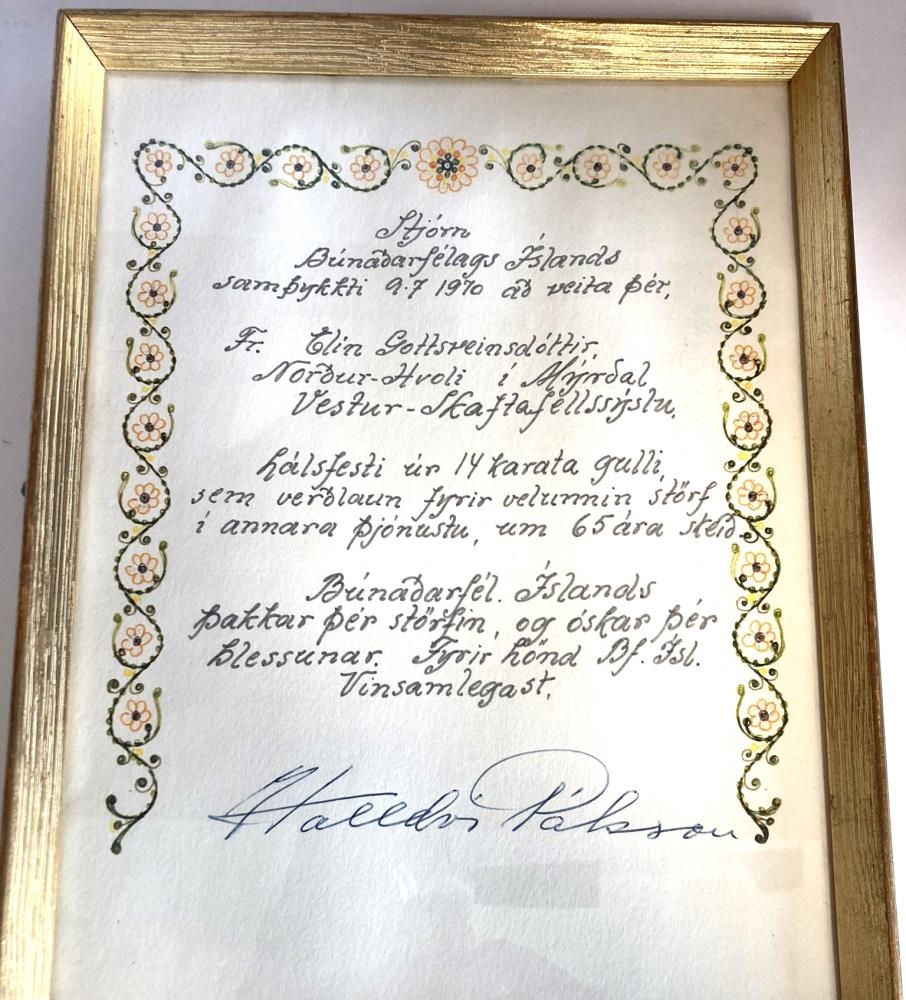 Stjórn
Búnaðarfélags Íslands
samþykkti 9.7 1970 að veita þér,
Fr. Elín Gottsveinsdóttir,
Norður-Hvoli í Mýrdal
Vestur-Skaftafellssýslu,
hálsfesti úr 14 karata gulli,
sem verðlaun fyrir velunnin störf
í annara þjónustu, um 65 ára skeið.
Búnaðarfél. Íslands
þakkar þér störfin, og óskar þér
blessunar. Fyrir hönd Bf. Ísl.
Vinsamlegast,
Halldór Pálsson